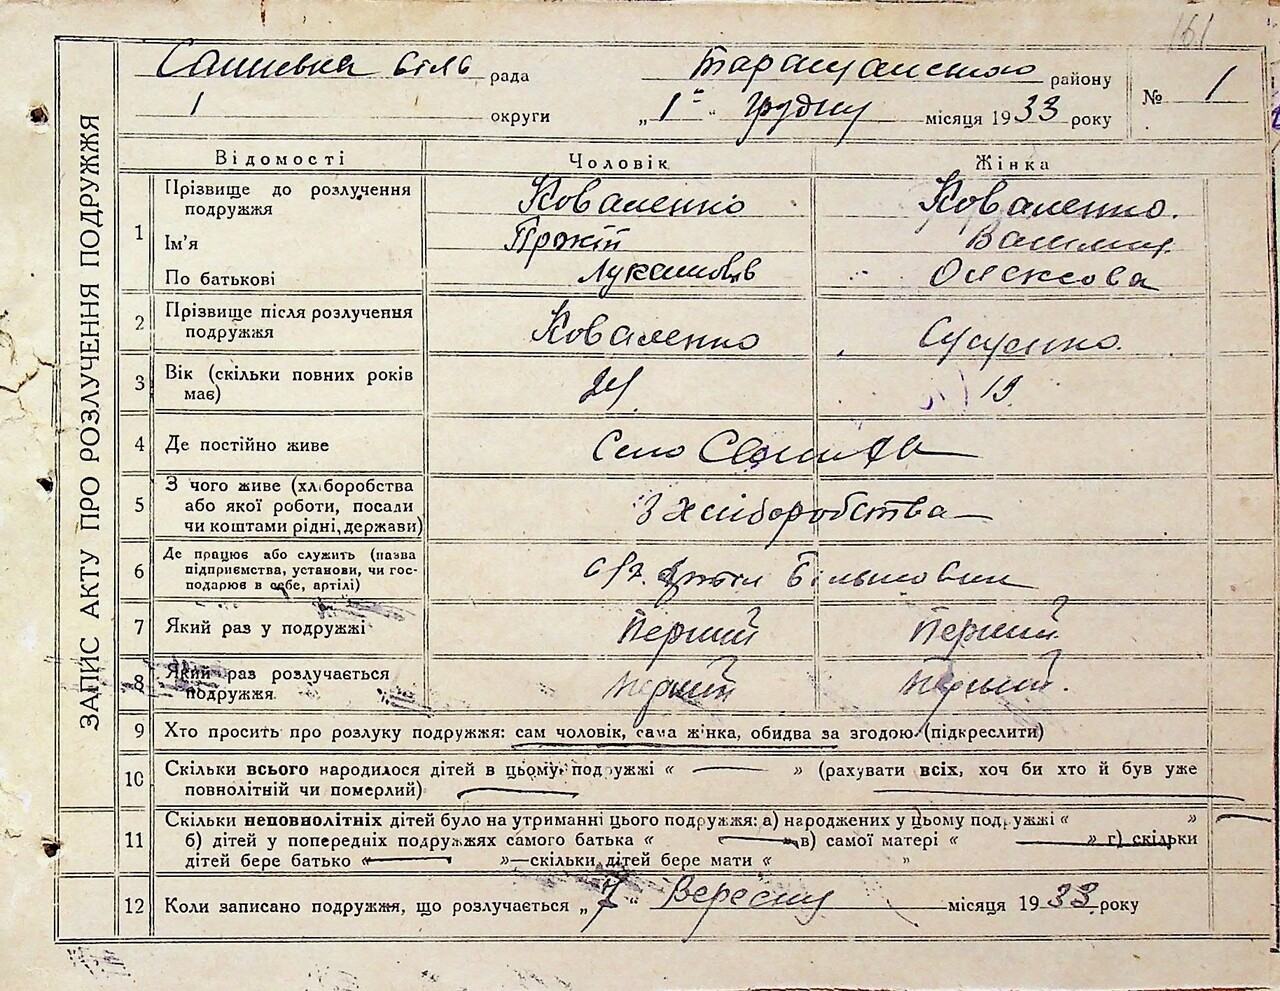 161
сіль рада
району
1 округи
„ 1 " грудну місяця 1933 року
№ 1
ЗАПИС АКТУ ПРО РОЗЛУЧЕННЯ ПОДРУЖЖЯ
Відомості Чоловік Жінка
1 Прізвище до розлучення подружжя Коваленко Коваленко.
Ім'я
По батькові Олексова
2 Прізвище після розлучення подружжя Коваленко
3 Вік (скільки повних років має) 24 19
4 Де постійно живе Село
5 З чого живе (хліборобства або якої роботи, посади чи коштами рідні, держави) З хліборобства
6 Де працює або служить (назва підприємства, установи, чи господарює в себе, артілі) с/г. Більшовик
7 Який раз у подружжі Перший Перший
8 Який раз розлучається подружжя Перший Перший.
9 Хто просить про розлуку подружжя: сам чоловік, сама жінка, обидва за згодою (підкреслити)
10 Скільки всього народилося дітей в цьому подружжі « — » (рахувати всіх, хоч би хто й був уже
повнолітній чи померлий)
11 Скільки неповнолітніх дітей було на утриманні цього подружжя: а) народжених у цьому подружжі « »
б) дітей у попередніх подружжях самого батька « — » в) самої матері « — » г) скільки
дітей бере батько « — »—скільки дітей бере мати « »
12 Коли записано подружжя, що розлучається „ 7 " Вересну місяця 1933 року